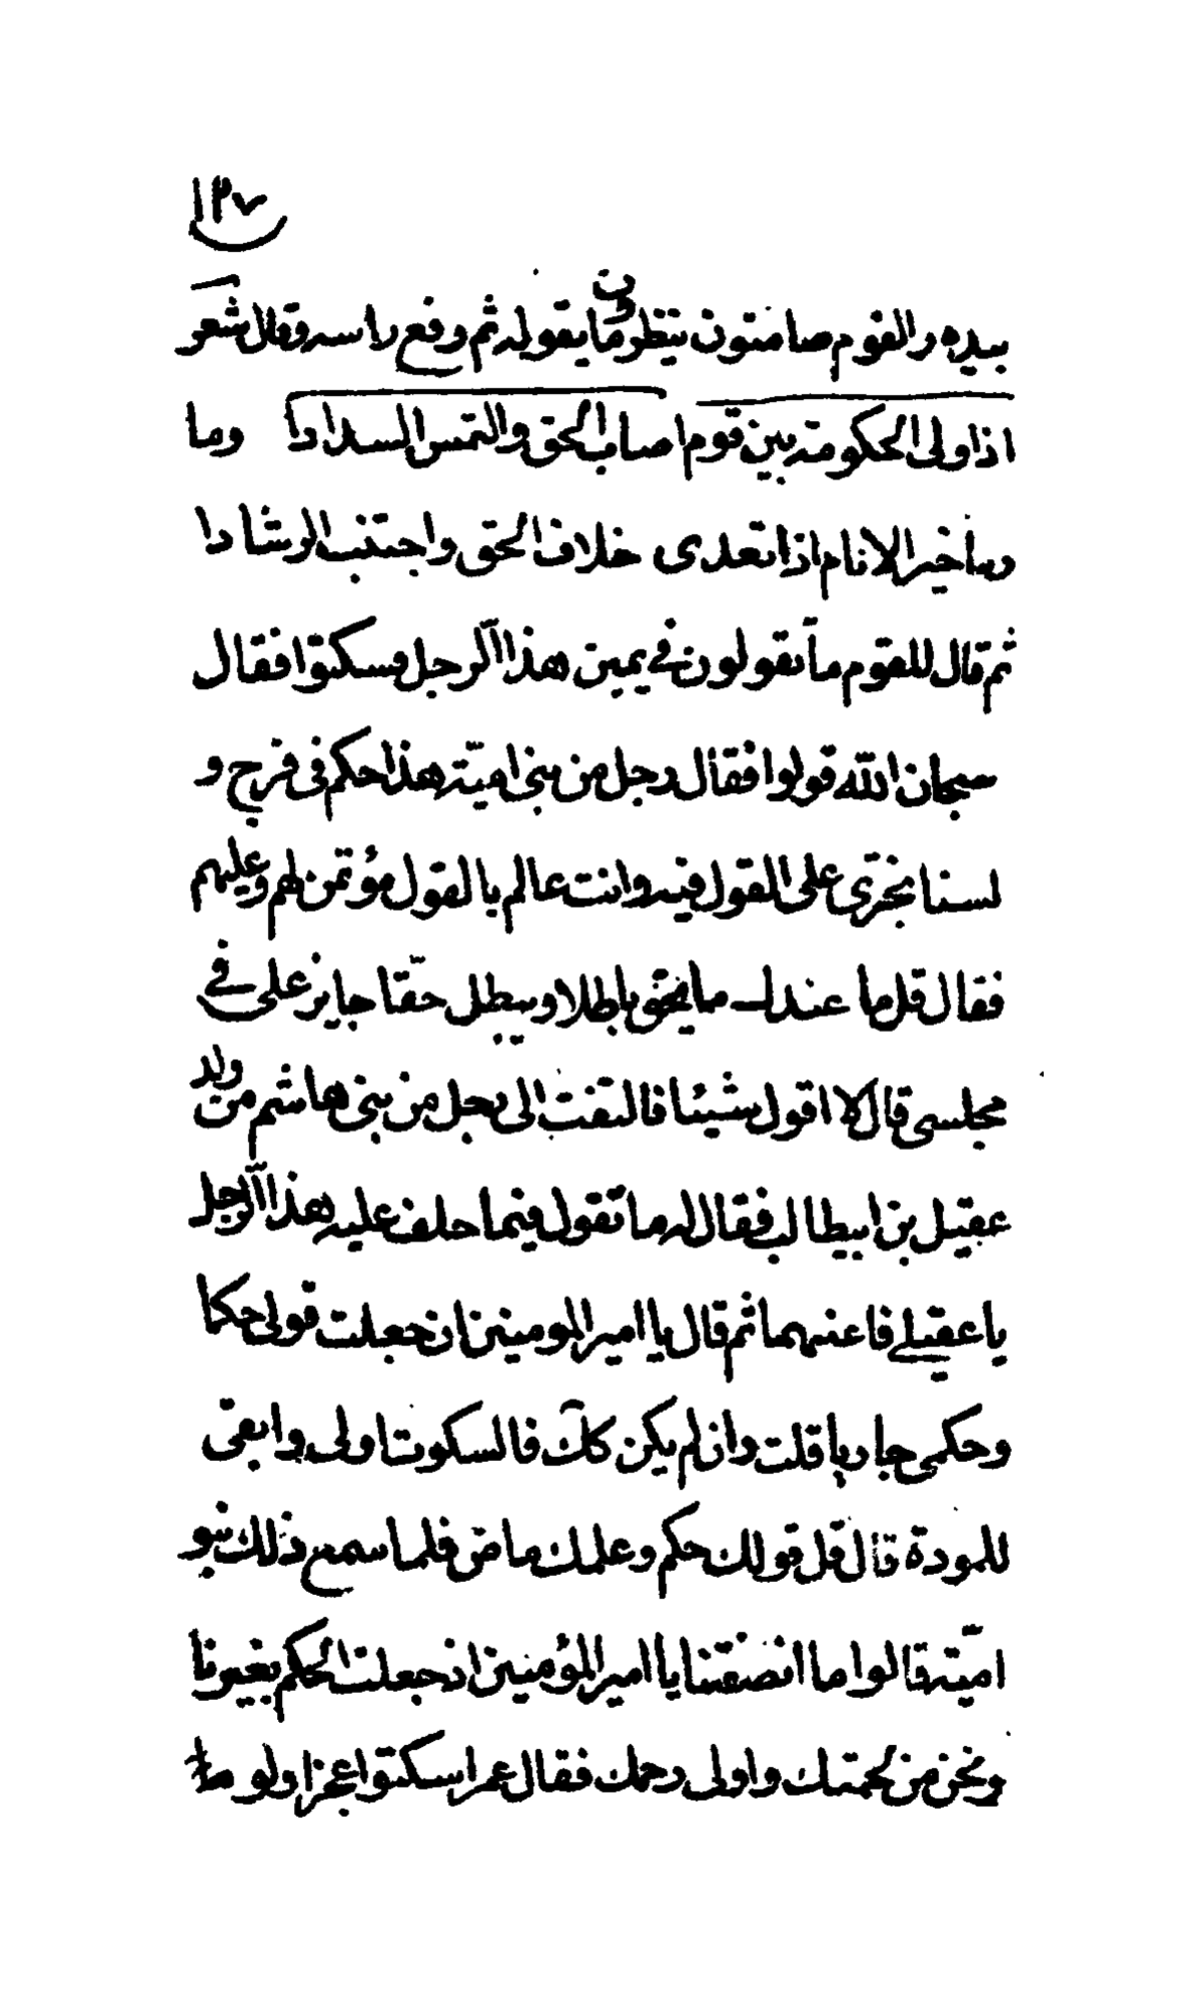 ١٣٧
بيده والقوم صامتون ينظرون ما يقوله ثم رفع راسه وقال شعر
اذا ولى الحكومة بين قوم اصاب الحق والتمس السدادا وما
وما خير الانام اذا تعدى خلاف الحق واجتنب الرشادا
ثم قال للقوم ما تقولون في يمين هذا الرجل فسكتوا فقال
سبحان الله قولوا فقال رجل من بني امية هذا حكم في فرج و
لسنا نجترى على القول فيه وانت عالم بالقول مؤتمن لهم وعليهم
فقال قل ما عندك ما يحق باطلا ويبطل حقا جايز على في
مجلسى قال لا اقول شيئا فالتفت الى رجل من بنى هاشم من ولد
عقيل بن ابيطالب فقال له ما تقول فيما حلف عليه هذا الرجل
يا عقيلي فاغتنمها ثم قال يا امير المومنين ان جعلت قولى حكما
وحكمى جاريا قلت وان لم يكن كك فالسكوت اولى وابقى
للمودة قال قل قولك حكم وعلمك ماض فلما سمع ذلك بنو
امية قالوا ما انصفتنا يا امير المؤمنين اذ جعلت الحكم بغيرنا
ونحن من لحمتك واولى رحمك فقال عمر اسكتوا عجزا ولوما